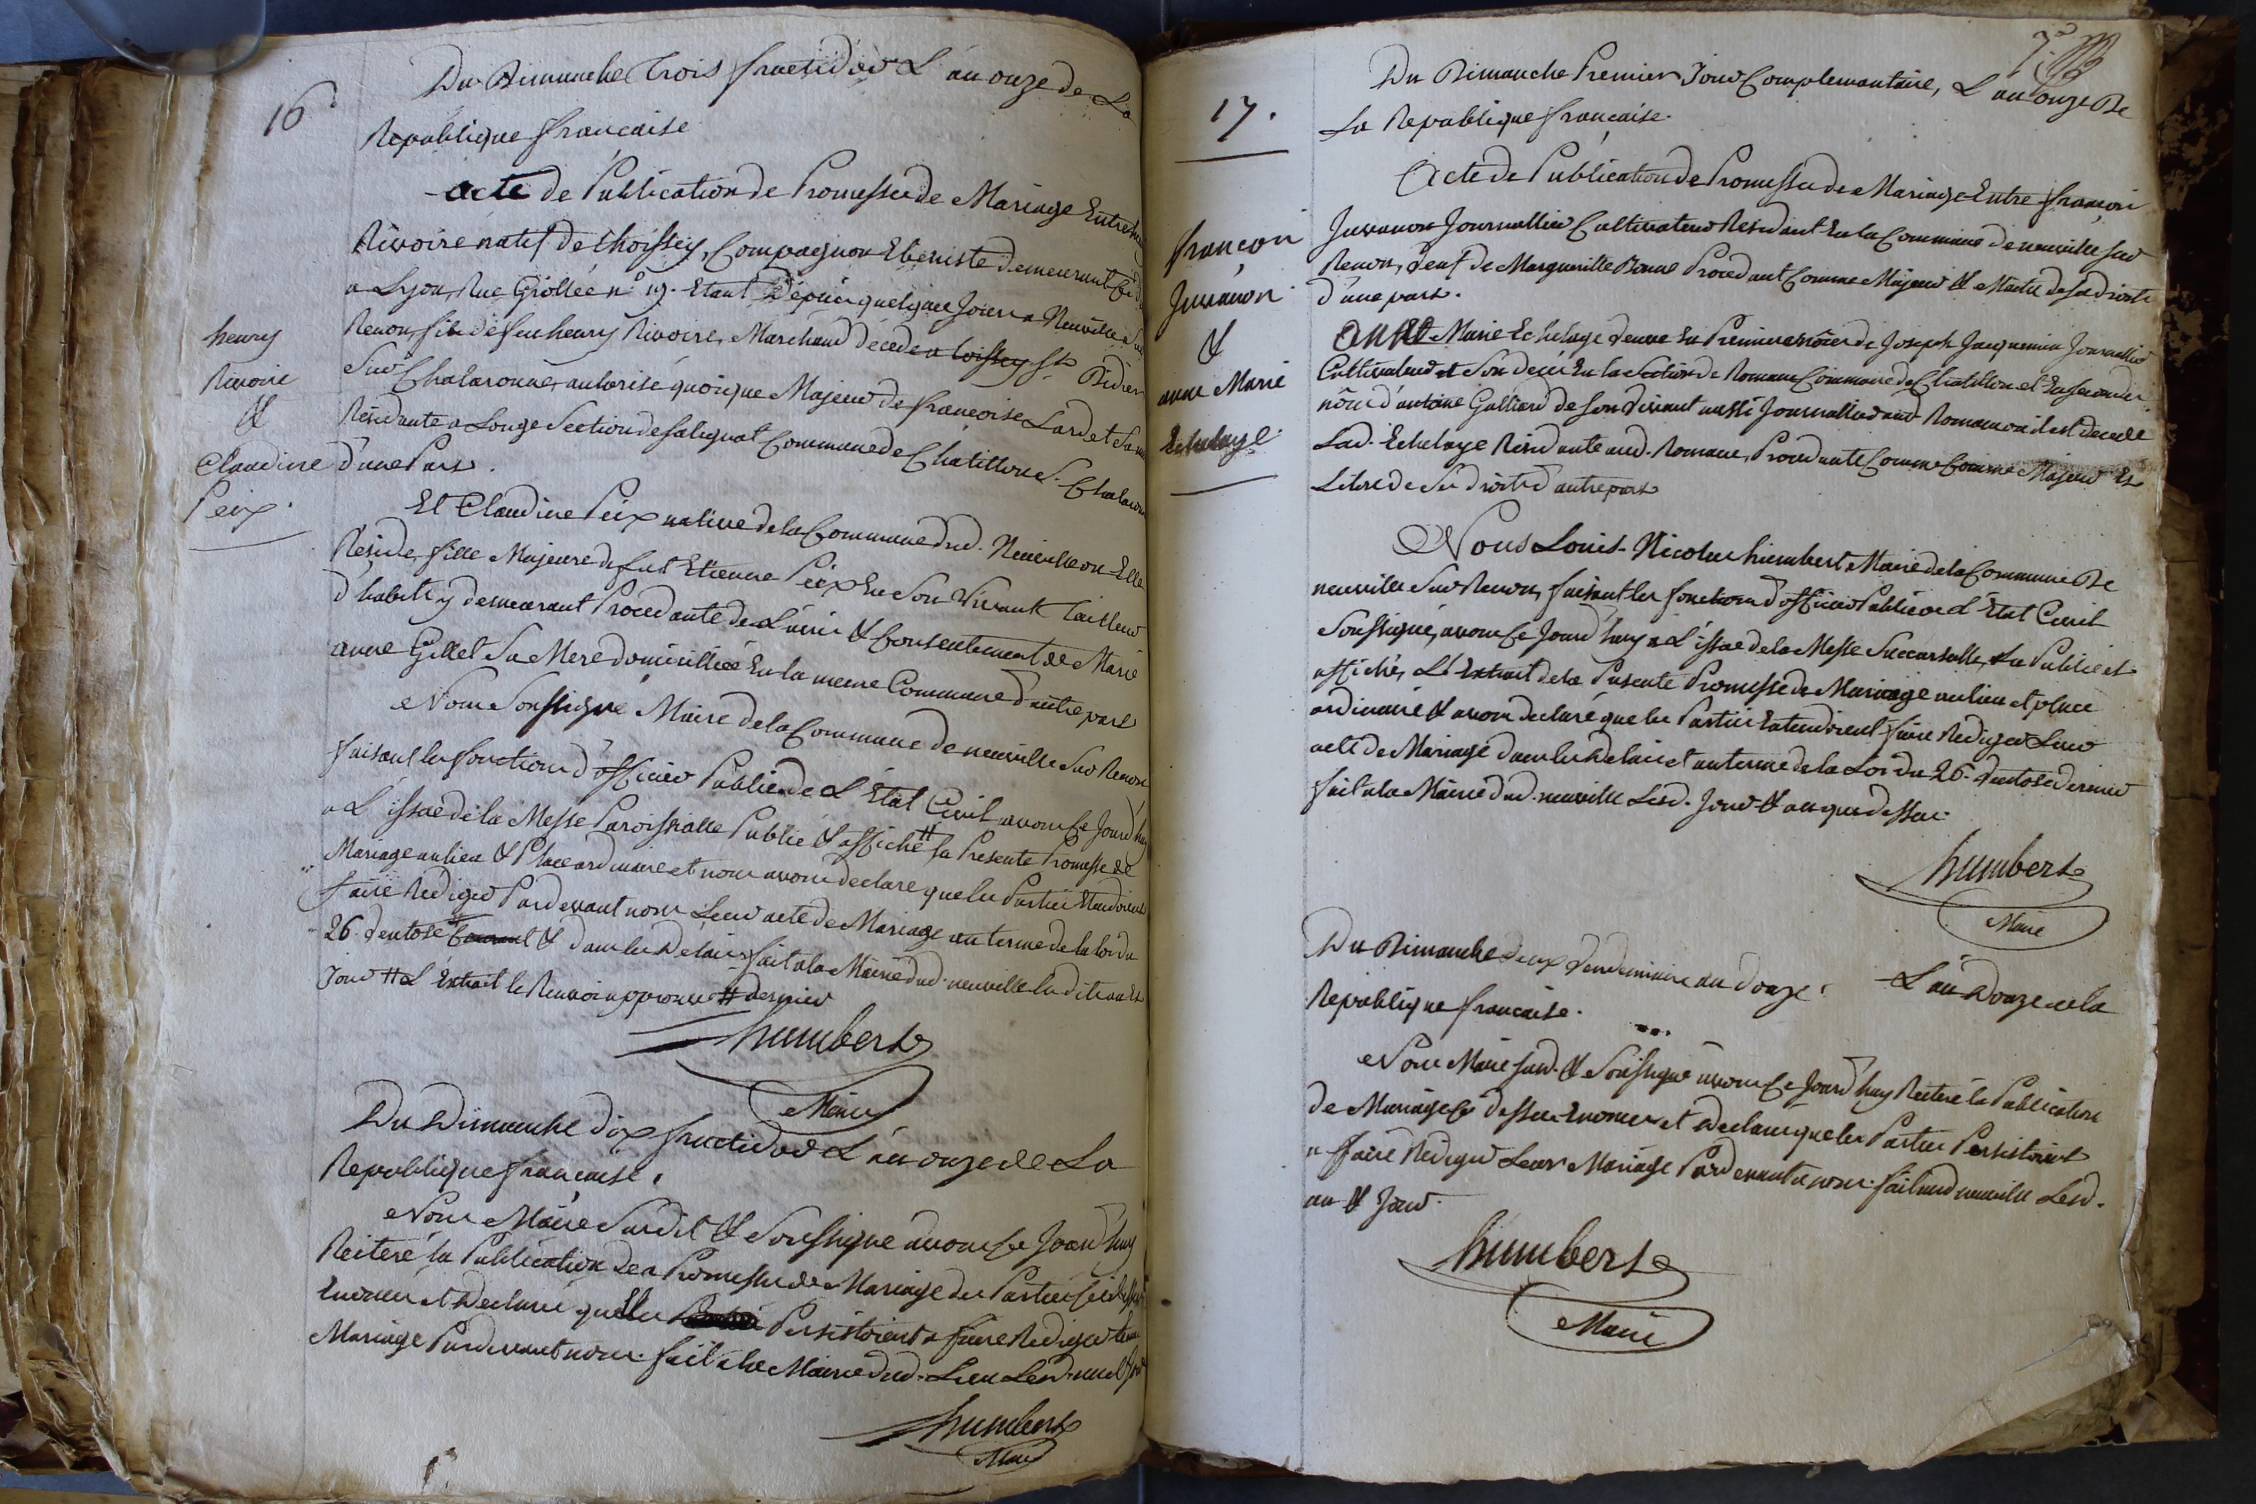 16
Du Dimanche trois fructidor L'an onze de La
Republique française
acte de Publication de Promesse de Mariage Entre henry
Rivoire natif de thoissey, Compagnon Ebeniste demeurant
a Lyon, Rue Grollée n.º 19. Etant Depuis quelques Jours a Neuville sur
Renon, fils de feu henry Rivoire, Marchand decede a St Didier
Sur Chalaronne, autorisé quoique Majeur de françoise Lardet sa mere
Residante a Longe Section de saliquat Commune de Chatillon S. Chalaronne
d'une Part.
henry
Rivoire
&
Claudine
Peix.
Et Claudine Peix native de la Commune dud. Neuville ou Elle
Reside, fille Majeure de fut Etienne Peix En Son Vivant Tailleur
d'habit y demeurant Procedante de L'avis & Consentement de Marie
anne Gillet Sa Mere domiciliée En la meme Commune d'autre part
Nous Soussigné Maire de la Commune de neuville Sur Renon
faisant les fonctions d'officier Public de L'Etat Civil avons Ce Jourd'huy
a L'issue de la Messe Paroissialle Publié & affiché # la Presente Promesse de
Mariage au lieu & Place ordinaire et nous avons declare que les Parties Etendoient
faire Rediger Pardevant nous Leur acte de Mariage au terme de la loi du
26. Ventose # Courant & dans les Delais fait a la Mairie dud. neuville les dits an &
Jour # L'Extrait le Renvoi approuvé # dernier
humbert
Maire
Du Dimanche dix fructidor L'an onze de La
Republique française.
Nous Maire Susdit & Soussigné avons Ce Jourd'huy
Reiteré la Publication de a Promesse de Mariage des Parties Ci dessus
Enoncé et Declaré quelles Persistoient a faire Rediger leur
Mariage Pardevant nous. fait a la Mairie dud. Lieu Lesd. an & Jour
humbert
Maire
17.
Du Dimanche Premier Jour Complemantaire, L'an onze De
La Republique française.
françois
Juvanon
&
anne Marie
Echalaye
Acte de Publication de Promesse de Mariage Entre françois
Juvanon Journallier Cultivateur Residant En la Commune de neuville sur
Renon, Veuf de Marguerite Bonne Procedant Comme Majeur & Maitre de Ses droits
d'une part.
Anne Marie Echalaye Veuve En Premiere noces de Joseph Jacquemin Journallier
Cultivateur et Son decés En la Section de Romans Commune de Chatillon et En Secondes
nôces d'antoine Galliard de Son Vivant aussi Journallier aud. Romans ou il est decede
Lad. Echalaye Residante aud. Romans, Procedante Comme Comme Majeur Et
Libre de Ses droits d'autre part
Nous Louis-Nicolas humbert Maire de la Commune De
neuville Sur Renon, faisant les fonctions d'officier Public de L'Etat Civil
Soussigné, avons Ce Jourd'huy a L'issue de la Messe Succursalle, Lu Publié et
affiché, L'Extrait de la Presente Promesse de Mariage au lieu et place
ordinaire & avons declaré que les Parties Entendoient faire Rediger Leur
acte de Mariage dans les Delais et au terme de la Loi du 26. Ventose dernier
fait a la Mairie dud. neuville Lesd. Jour & an que dessus.
humbert
Maire
Du Dimanche deux Vendemiaire an Douze. L'an Douze de la
Republique française.
Nous Maire Susd. & Soussigné avons Ce Jourd'huy Reiteré la Publication
de Mariage Ci dessus Enoncé et Declaré que les Parties Persistoient
a faire Rediger Leur Mariage Pardevant a nous. fait aud neuville Lesd.
an & Jour.
humbert
Maire